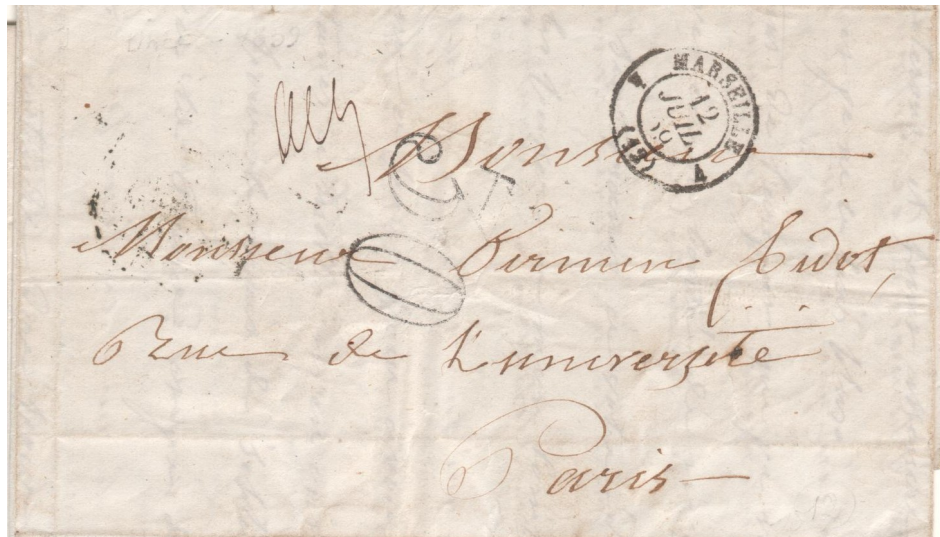 MARSEILLE
12
JUIL
(12)
Monsieur
Monsieur Firmin Didot,
Rue de l'université
Paris